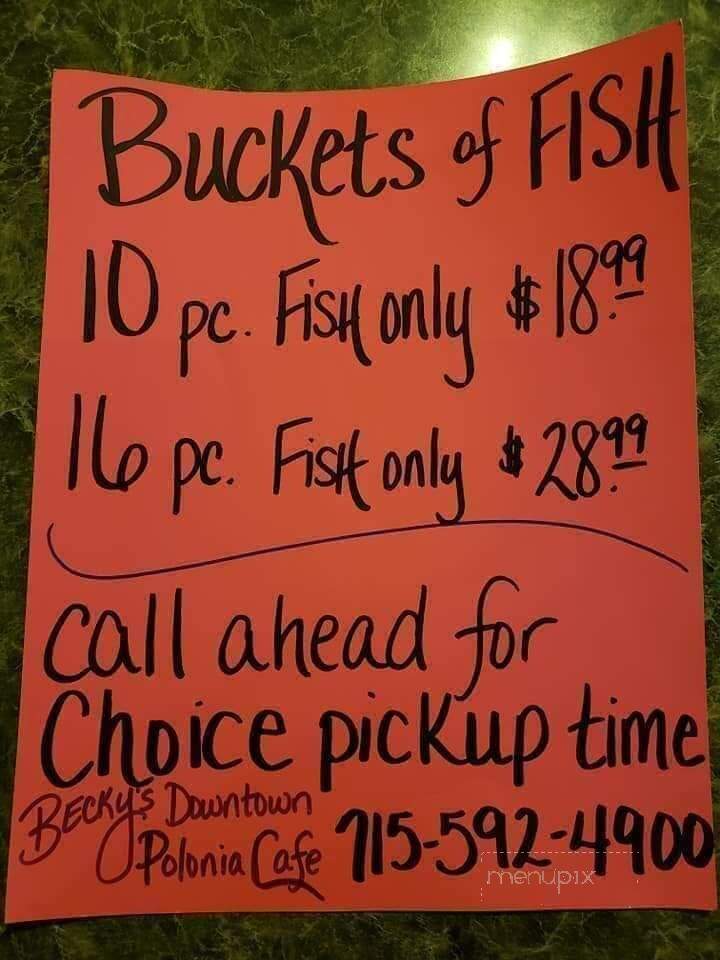 Buckets of FISH
10 pc. Fish only $18.99
16 pc. Fish only $28.99
call ahead for
Choice pickup time
Becky's Downtown
Polonia Cafe 715-592-4900
menupix